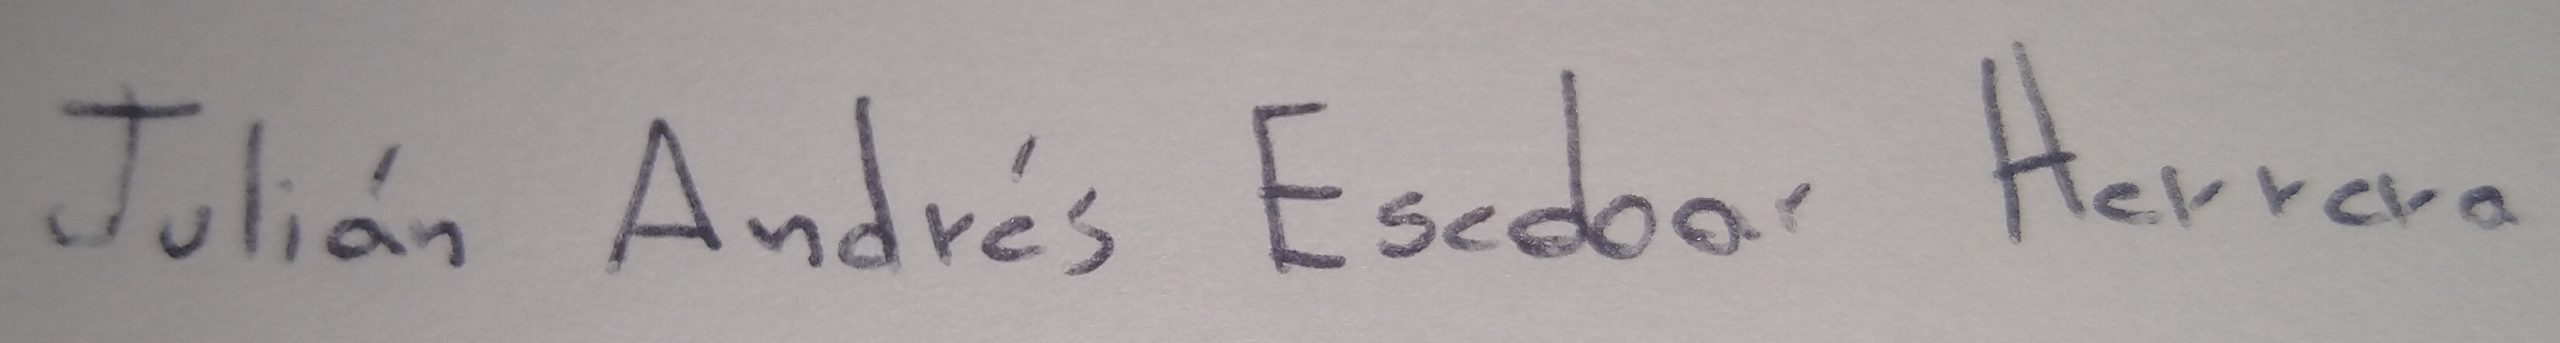 Julián Andrés Escobar Herrera